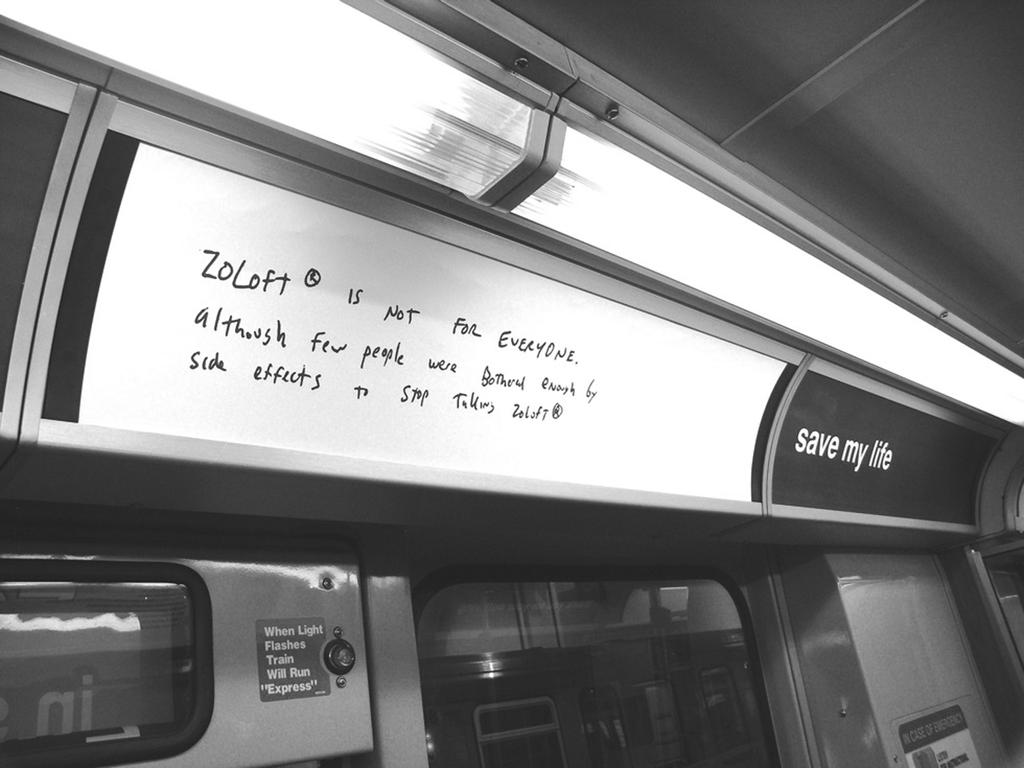 ZOLOFT ® IS NOT FOR EVERYONE.
although few people were Bothered enough by
side effects to Stop Taking ZOLOFT ®
save my life
When Light
Flashes
Train
Will Run
"Express"
IN CASE OF EMERGENCY